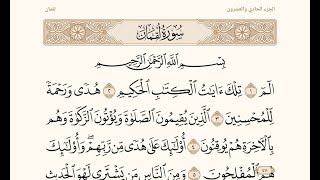 الجزء الحادي والعشرون
لقمان
سُورَةُ لُقْمَان
بِسْمِ اللَّهِ الرَّحْمَٰنِ الرَّحِيمِ
الٓمٓ ١ تِلْكَ ءَايَٰتُ الْكِتَٰبِ الْحَكِيمِ ٢ هُدًى وَرَحْمَةً
لِّلْمُحْسِنِينَ ٣ الَّذِينَ يُقِيمُونَ الصَّلَوٰةَ وَيُؤْتُونَ الزَّكَوٰةَ وَهُم
بِالْءَاخِرَةِ هُمْ يُوقِنُونَ ٤ أُو۟لَٰٓئِكَ عَلَىٰ هُدًى مِّن رَّبِّهِمْ ۖ وَأُو۟لَٰٓئِكَ
هُمُ الْمُفْلِحُونَ ٥ وَمِنَ النَّاسِ مَن يَشْتَرِى لَهْوَ الْحَدِيثِ